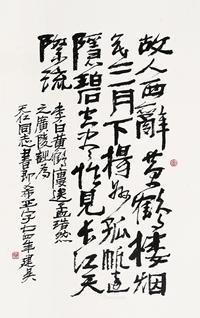 故人西辭黄鶴樓烟
花三月下揚州孤帆遠
影碧空尽惟見长江天
際流
李白黄鶴樓送孟浩然
之廣陵詩為
天仁同志書即希正字七四年